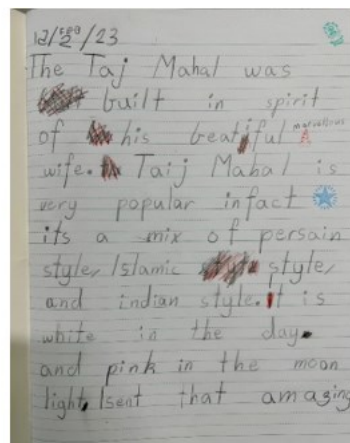 12/Feb/23
2
The Taj Mahal was
built in spirit
of his beatiful marvellous
wife. Taij Mahal is
very popular infact
its a mix of persain
style, Islamic style,
and indian style. It is
white in the day.
and pink in the moon
light, Isent that amazing